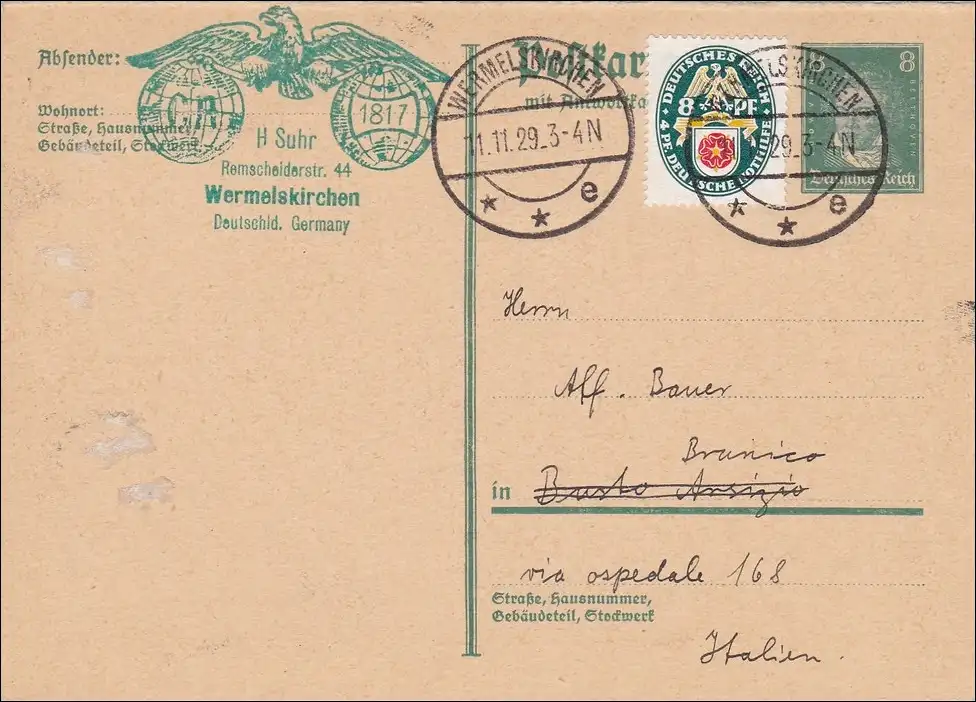 Absender:
Wohnort:
Straße, Hausnummer,
Gebäudeteil, Stockwerk
1817
H Suhr
Remscheiderstr. 44
Wermelskirchen
Deutschld. Germany
Postkar
mit Antwortka
WERMELSKIRCHEN
11.11.29.3-4N
e
DEUTSCHES REICH
8 PF
4 PF. DEUTSCHE NOTHILFE
29.3-4N
e
8
Deutsches Reich
Herrn
Alf. Bauer
Brunico
in Busto Arsizio
via ospedale 168
Straße, Hausnummer,
Gebäudeteil, Stockwerk
Italien.